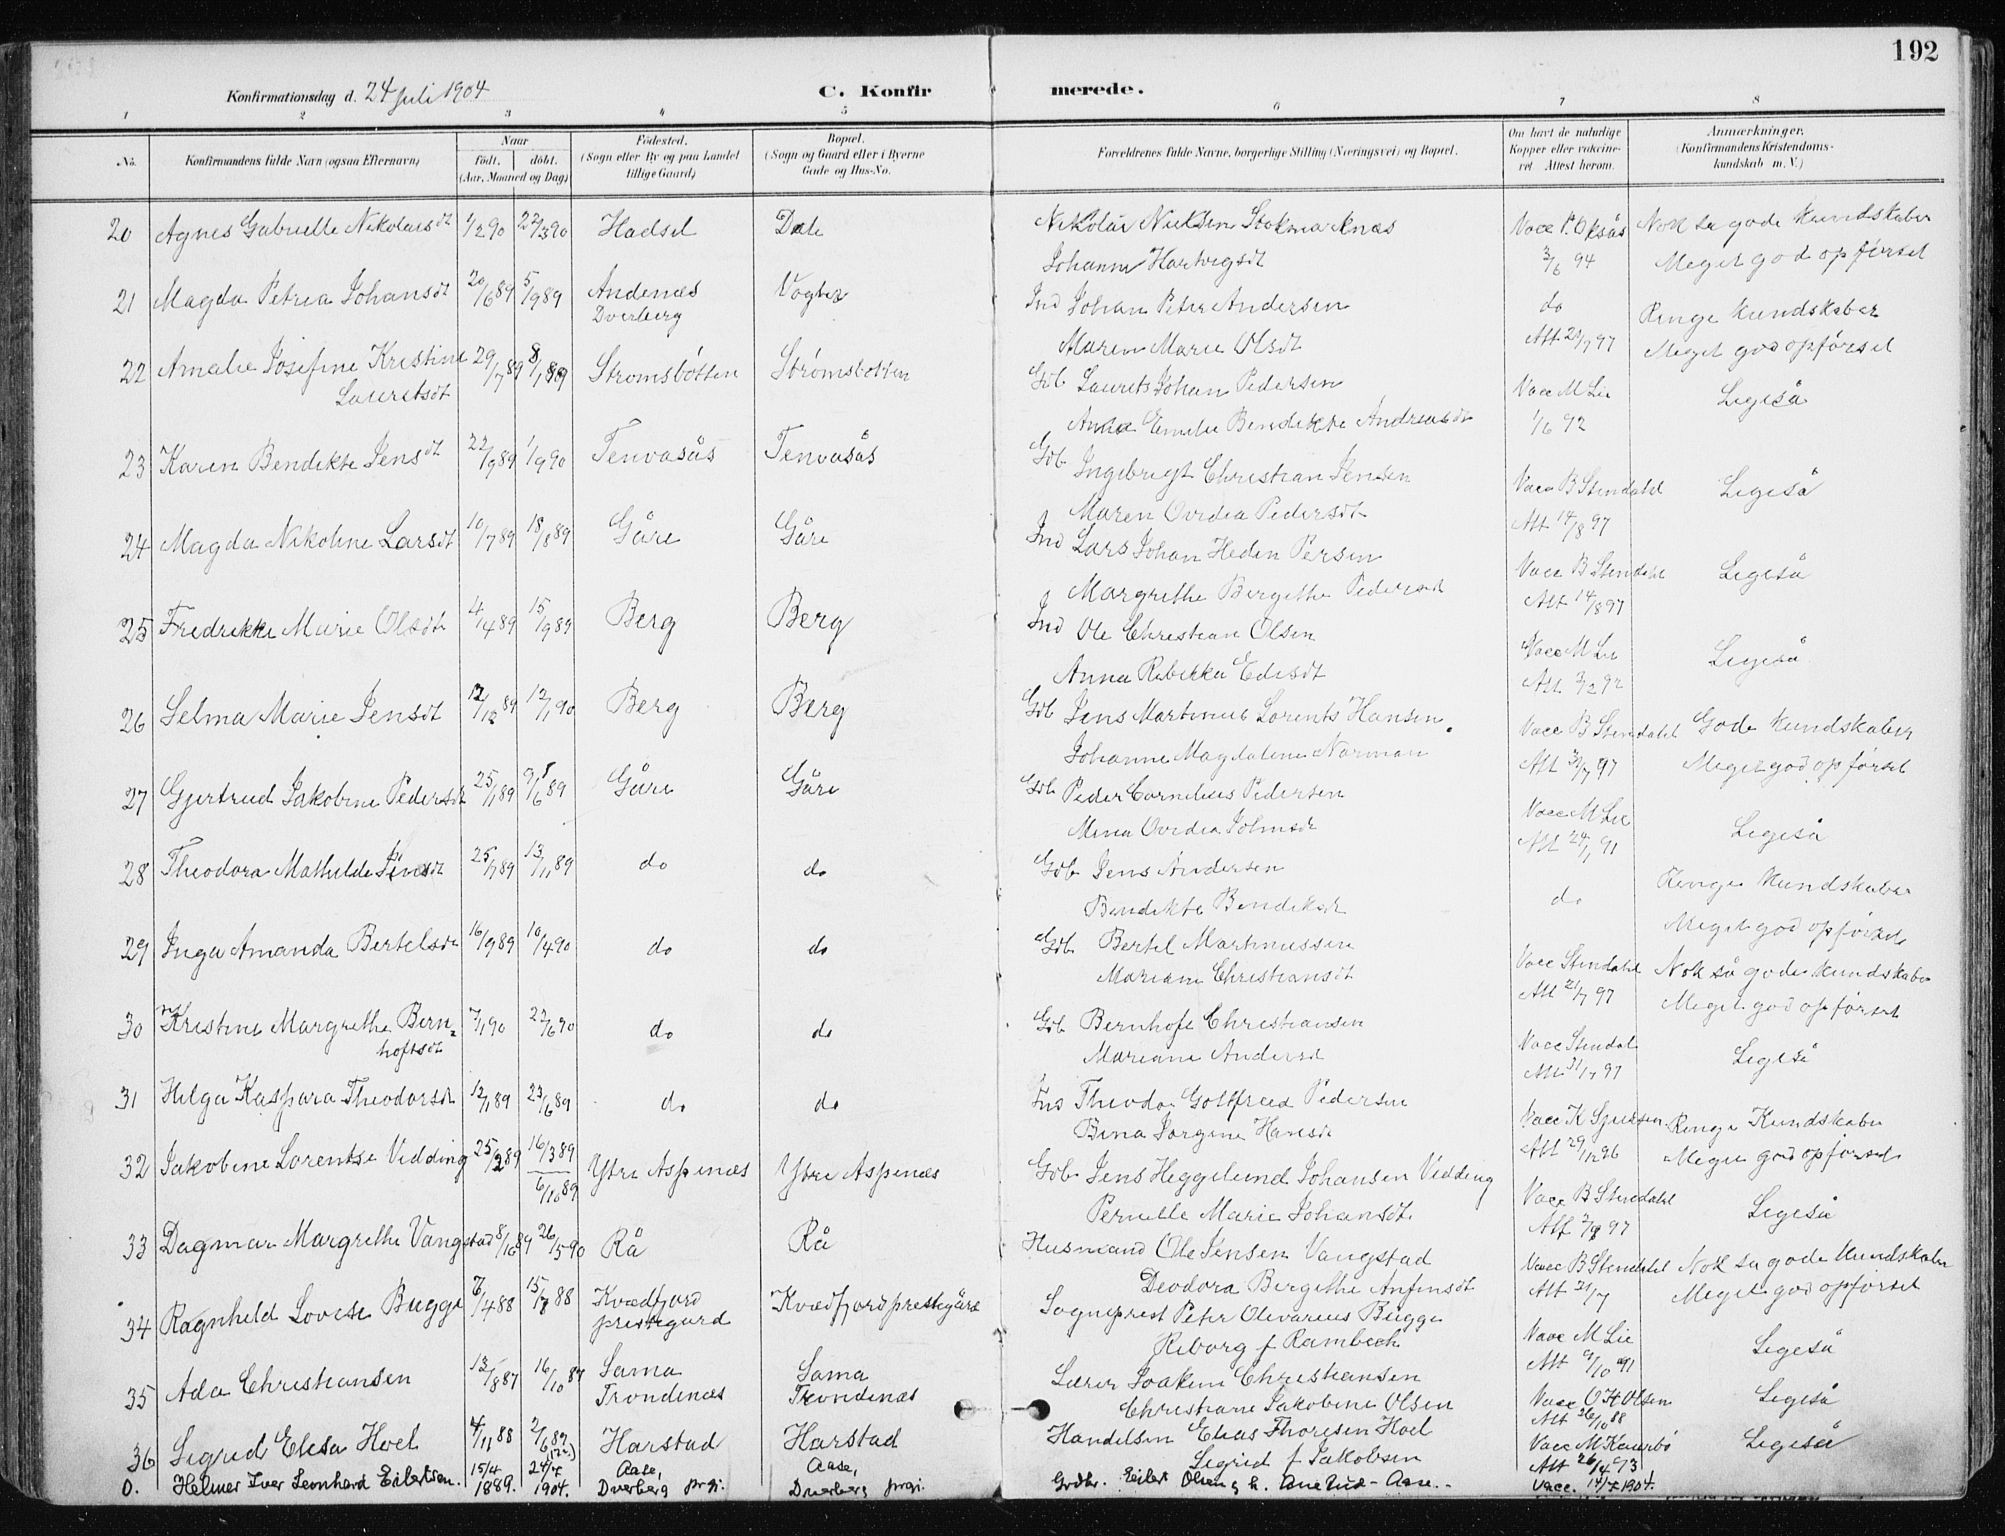 192
Konfirmationsdag d. 24 juli 1904
C. Konfirmerede.
1 2 3 4 5 6 7 8
No. Konfirmandens fulde Navn (ogsaa Efternavn) Naar født. døbt. (Aar, Maaned og Dag) Fødested. (Sogn eller By og paa Landet tillige Gaard) Bopæl. (Sogn og Gaard eller i Byerne Gade og Hus-No. Forældrenes fulde Navne, borgerlige Stilling (Næringsvei) og Bopæl. Om havt de naturlige Kopper eller vakcineret Attest herom. Anmærkninger. (Konfirmandens Kristendomskundskab m. V.)
20 Agnes Gabrielle Nikolaisdt 1/2 90 23/3 90 Hadsel Dale Nikolai Nielsen Stokmarknæs Vacc P. Oksås Nok sa gode kundskaber
Johanna Hartvigsdt 3/6 94 Meget god opførsel
21 Magda Petria Johansdt 20/6 89 5/9 89 Andenæs Vogter Ind Johan Peter Andersen do Ringe kundskaber
Dverberg Maren Marie Olsdt Att 21/7 97 Meget god opførsel
22 Amalie Josefine Kristine 29/7 89 8/1 89 Stromsbotten Strømsbotten Gdb Laurits Johan Pedersen Vacc M Lie Ligeså
Lauritsdt Emelie Bendikte Andreasdt 1/6 92
23 Karen Bendikte Jensdt 22/9 89 1/9 90 Tenvasås Tenvasås Gdb Ingebrigt Christian Jensen Vacc B Stendahl Ligeså
Maren Ovidia Pedersdt Att 14/8 97
24 Magda Nikoline Larsdt 10/7 89 18/8 89 Gåre Gåre Ind Lars Johan Hedin Persen Vacc B Stendahl Ligeså
Margrethe Bergithe Pedersdt Att 14/8 97
25 Fredrikke Marie Olsdt 4/4 89 15/9 89 Berg Berg Ind Ole Christian Olsen Vacc M Lie Ligeså
Anna Rebekka Edisdt Att 3/2 92
26 Selma Marie Jensdt 12/12 89 12/1 90 Berg Berg Gdb Jens Martinus Lorents Hansen Vacc B Stendahl Gode kundskaber
Johanne Magdalene Norman Att 31/7 97 Meget god opførsel
27 Gjertrud Jakobine Pedersdt 25/1 89 9/6 89 Gåre Gåre Gdb Peder Cornelius Pedersen Vacc M Lie Ligeså
Mina Ovidia Johnsdt Att 24/1 91
28 Theodora Mathilde Jensdt 25/7 89 13/11 89 do do Gdb Jens Andersen do Ringe kundskaber
Bendikte Bendiksdt Meget god opførsel
29 Inga Amanda Bertelsdt 16/9 89 10/4 90 do do Gdb Bertel Martinussen Vacc Stendahl Nok så gode kundskaber
Mariane Christiansdt Att 21/7 97 Meget god opførsel
30 Kristine Margrethe Bern- 7/1 90 22/6 90 do do Gdb Bernhoft Christiansen Vacc Stendal Ligeså
hoftsdt Mariane Andersdt Att 31/7 97
31 Helga Kaspara Theodorsdt 12/1 89 23/6 89 do do Ins Theodor Gottfried Pedersen Vacc K Sjulsen Ringe Kundskaber
Bina Jorgine Hansdt Att 29/12 96 Meget god opførsel
32 Jakobine Lorentse Vidding 25/2 89 16/3 89 Ytre Aspenæs Ytre Aspenæs Gdb Jens Heggelund Johansen Vidding Vacc B Stendahl Ligeså
6/10 89 Pernelle Marie Johansdt Att 2/8 97
33 Dagmar Margrethe Vangstad 8/10 89 26/5 90 Rå Rå Husmand Ole Jensen Vangstad Vacc B Stendahl Nok sa gode kundskaber
Deodora Bergithe Anfinsdt Att 21/7 Meget god opførsel
34 Ragnhild Lovise Bugge 6/4 88 15/7 88 Kvædfjord Kvædfjordprestegård Sogneprest Peter Olivarius Bugge Vacc M Lie Ligeså
prestegård Riborg f Rambech Att 9/10 91
35 Ada Christiansen 13/8 87 16/10 87 Sama Sama Lærer Joakim Christiansen Vacc O H Olsen Ligeså
Trondenæs Trondenæs Christiane Jakobine Olsen Att 26/10 88
36 Sigrid Elisa Hoel 4/11 88 2/6 89 Harstad Harstad Handelsm Elias Thoresen Hoel Vacc M Ligeså
Sigrid f Jakobsen Att 26/4
0. Helmer Iver Leonhard Eilertsen. 15/4 1889. 24/7 1904. Aase, Dverberg prgj. Aase, Dverberg prgj. Grdbr. Eilert Olsen og h. - Aase. Vacc. 14/7 1904.